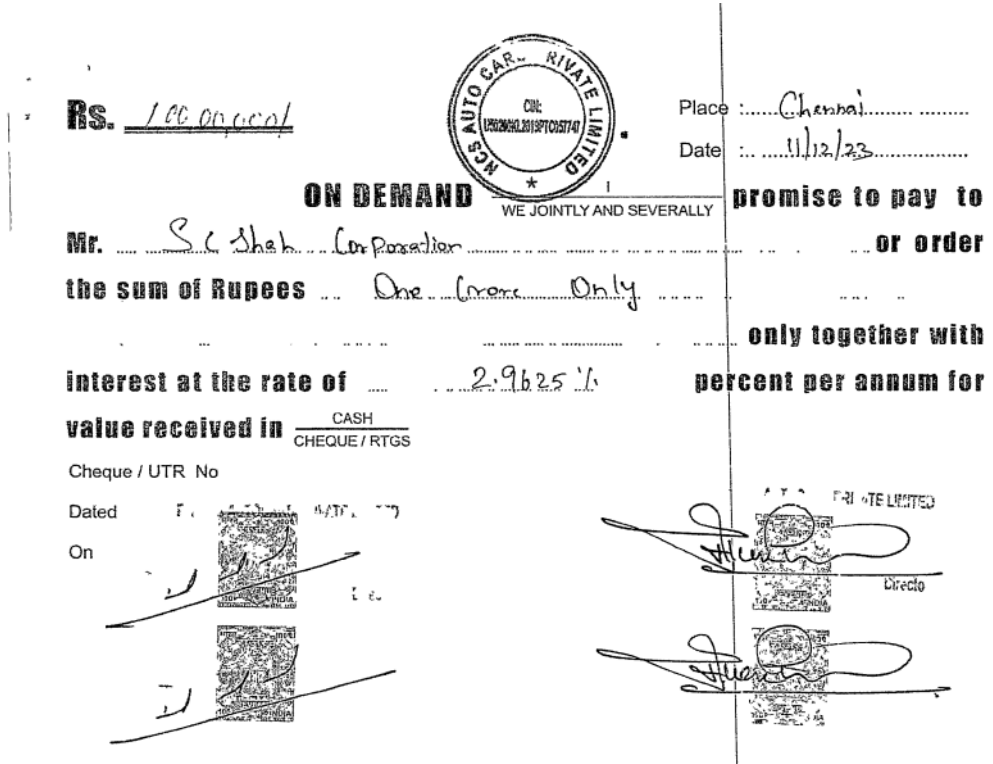 Rs. 1,00,00,000/
NCS AUTO CAR RIVATE LIMITED
CIN:
Place : Chennai
Date : 11/12/23
ON DEMAND I promise to pay to
WE JOINTLY AND SEVERALLY
Mr. S C Shah Corporation or order
the sum of Rupees One Crore Only
only together with
interest at the rate of 2.9625 % percent per annum for
value received in CASH
CHEQUE / RTGS
Cheque / UTR No
Dated
LIMITED
On
Directo